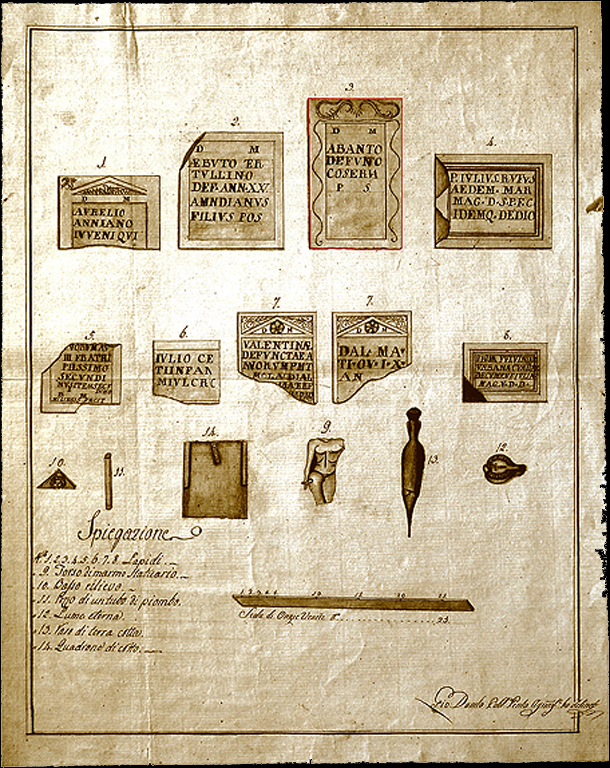 1.
D M
AVRELIO
ANNIANO
IVVENI QVI
2.
D M
ÆBVTO TER
TVLLINO
DEF·ANN·XX
AMNDIANVS
FILIVS POS
3.
D M
ABANTO
DEFVNO
COSERN
P S
4.
P. IVLIVS RVFVS
AEDEM MAR
MAG·D·S·PEC
IDEMQ. DEDIO
5.
III FRATRI
PIISSIMO
SECVNDI
6.
IVLIO CE
TI IN PAN
MIVL CRC
7.
D M
VALENTINÆ
DEFVNCTAE A
NNORVM PMT
7.
D M
DAL·MA
TI·QV·I·X·
AN
8.
MAG·V·D·D·
10.
11.
14.
9.
13.
12.
Spiegazione
N.º 1. 2. 3. 4. 5. 6. 7. 8. Lapidi.
9. Torso di marmo Statuario.
10. Basso rilievo.
11. Pezo di un tubo di piombo.
12. Lume eterna.
13. Vaso di terra cotta.
14. Quadrone di cotto.
Scala di Onzie Venete